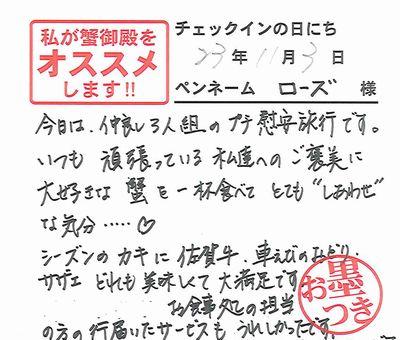 私が蟹御殿を
オススメ
します!!
チェックインの日にち
23年11月3日
ペンネーム ローズ 様
今日は、仲良し3人組のプチ慰安旅行です。
いつも頑張っている私達へのご褒美に
大好きな蟹を一杯食べてとても"しあわせ"
な気分・・・・・♡
シーズンのカキに佐賀牛、車えびのおどり、
サザエ どれても美味しくて大満足です
お食事処の担当
の方の行届いたサービスもうれしかったです。
お墨つき